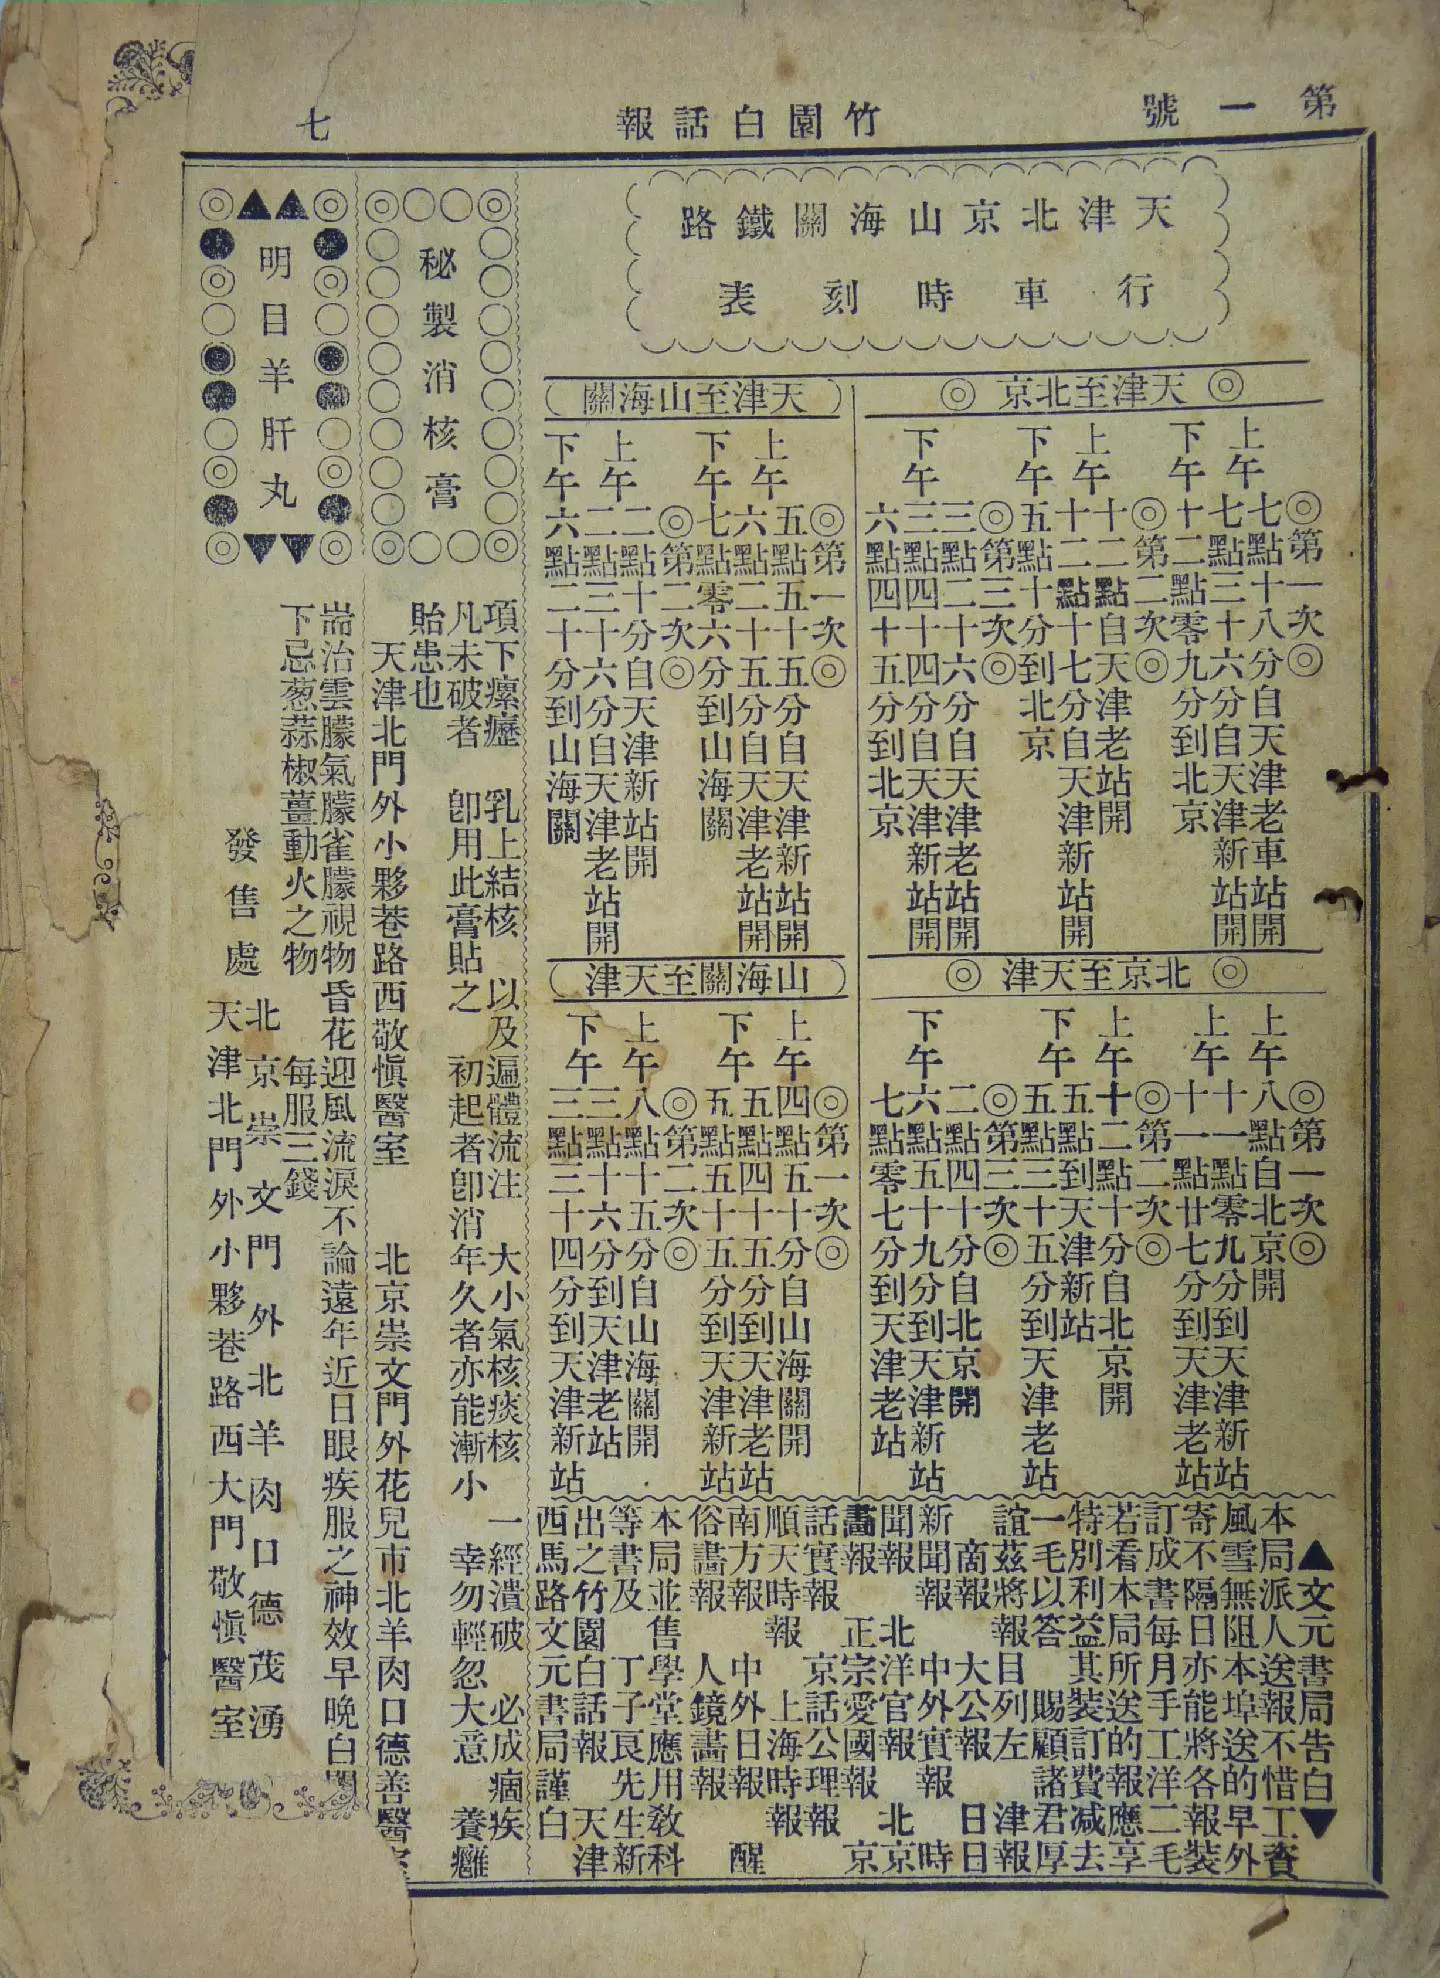 第一號
竹園白話報
七
天津北京山海關鐵路
行車時刻表
◎天津至北京◎
◎第一次◎
上午七點十八分自天津老車站開
七點三十六分自天津新站開
下午十二點零九分到北京
◎第二次◎
上午十二點自天津老站開
十二點十七分自天津新站開
下午五點十分到北京
◎第三次◎
三點二十六分自天津老站開
下午三點四十四分自天津新站開
六點四十五分到北京
天津至山海關
◎第一次◎
上午五點五十五分自天津新站開
六點二十五分自天津老站開
下午七點零六分到山海關
◎第二次◎
上午二點十分自天津新站開
二點三十六分自天津老站開
下午六點二十分到山海關
◎北京至天津◎
◎第一次◎
上午八點自北京開
十一點零九分到天津新站
上午十一點廿七分到天津老站
◎第二次◎
上午十二點十分自北京開
五點到天津新站
下午五點三十五分到天津老站
◎第三次◎
二點四十分自北京開
下午六點五十九分到天津新站
七點零七分到天津老站
山海關至天津
◎第一次◎
上午四點五十分自山海關開
五點四十五分到天津老站
下午五點五十五分到天津新站
◎第二次◎
上午八點十五分自山海關開
三點十六分到天津老站
下午三點三十四分到天津新站
▲文元書局告白▼
本局派人送報不惜工資
風雪無阻本埠送的早外
寄不隔日亦能將各報裝
訂成書每月手工洋二毛
若看本局所送的報應享
特別利益其裝訂費減去
一毛以答 賜顧諸君厚
誼茲將報目列左 津報
商報 大公報 日日
新聞報 中外實報 時
聞報 北洋官報 北京
畫報 正宗愛國報 京
話實報 京話公理報
順天時報 上海時報
南方報 中外日報 醒
俗畫報 人鏡畫報
本局並售學堂應用教科
等書及 丁子良先生新
出之竹園白話報 天津
西馬路文元書局謹白
秘製消核膏
項下瘰癧 乳上結核 以及遍體流注 大小氣核痰核 一經潰破 必成痼疾
凡未破者 卽用此膏貼之 初起者卽消 年久者亦能漸小 幸勿輕忽大意 養癰
貽患也
天津北門外小夥巷路西敬愼醫室 北京崇文門外花兒市北羊肉口德善醫室
明目羊肝丸
耑治雲朦氣朦雀朦視物昏花迎風流淚不論遠年近日眼疾服之神效早晚白
下忌葱蒜椒薑動火之物 每服三錢
發售處
北京崇文門外北羊肉口德茂湧
天津北門外小夥巷路西大門敬愼醫室